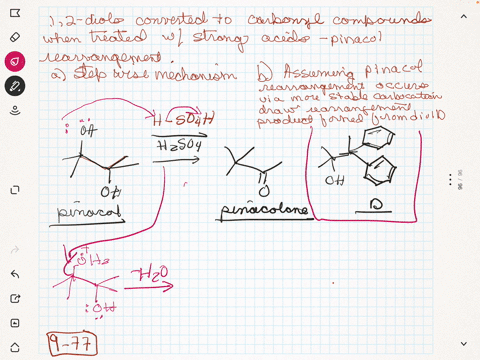 1,2-diols converted to carbonyl compounds
when treated w/ strong acids - pinacol
rearrangement.
a) Step wise mechanism
b) Assuming pinacol
rearrangement occurs
via more stable carbocation
draw rearrangement
product formed (from diol D
H-SO4H
H2SO4
OH
OH
O
OH
pinacol
pinacolone
D
OH2
OH
-H2O
9-77